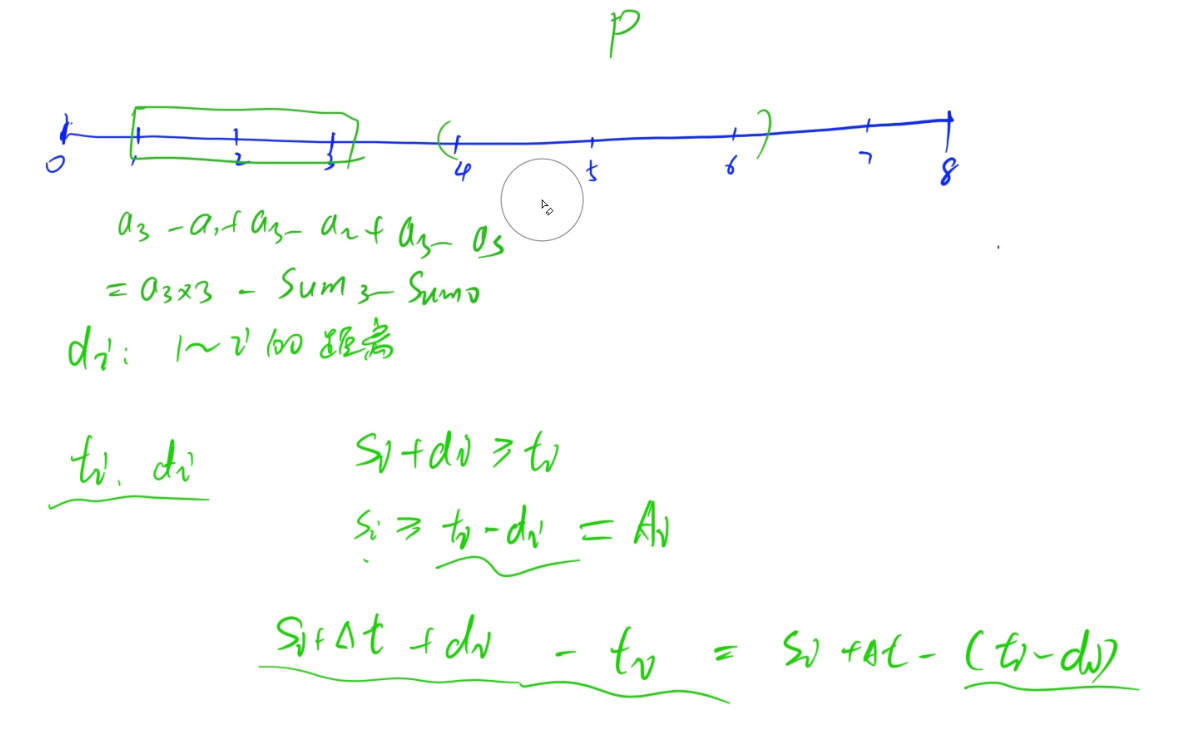 P
0 1 2 3 4 5 6 7 8
a₃ - a₁ + a₃ - a₂ + a₃ - a₃
= a₃×3 - Sum₃ - Sum₀
dᵢ: 1~i 的 距离
tᵢ. dᵢ
Sᵢ + dᵢ ≥ tᵢ
Sᵢ ≥ tᵢ - dᵢ = Aᵢ
Sᵢ + Δt + dᵢ - tᵢ = Sᵢ + Δt - (tᵢ - dᵢ)